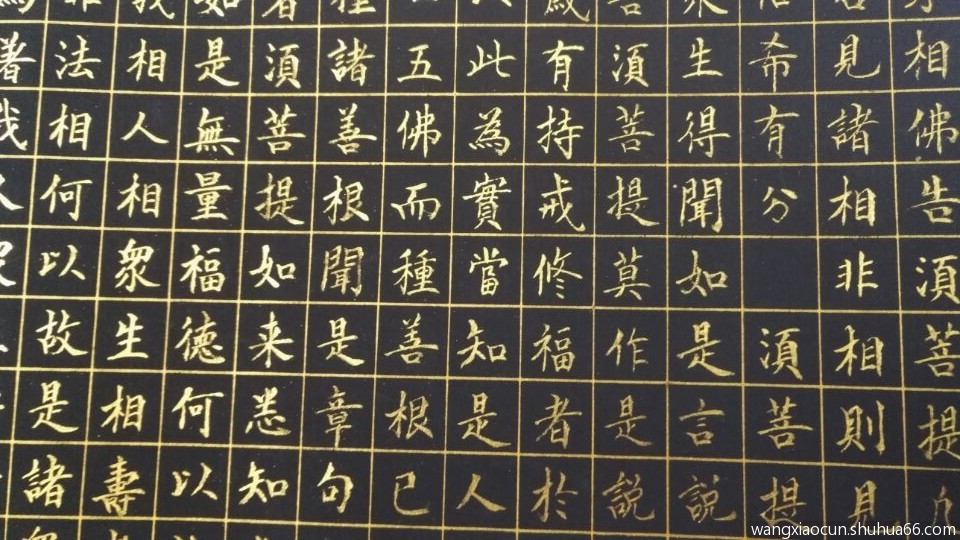 相佛告須菩提
見諸相非相則見
希有分 須菩提
生得聞如是言說
須菩提莫作是說
有持戒修福者於
此為實當知是人
五佛而種善根已
諸善根聞是章句
須菩提如来悉知
是無量福德何以
相人相衆生相壽
法相何以故是諸
著我
wangxiaocun.shuhua66.com